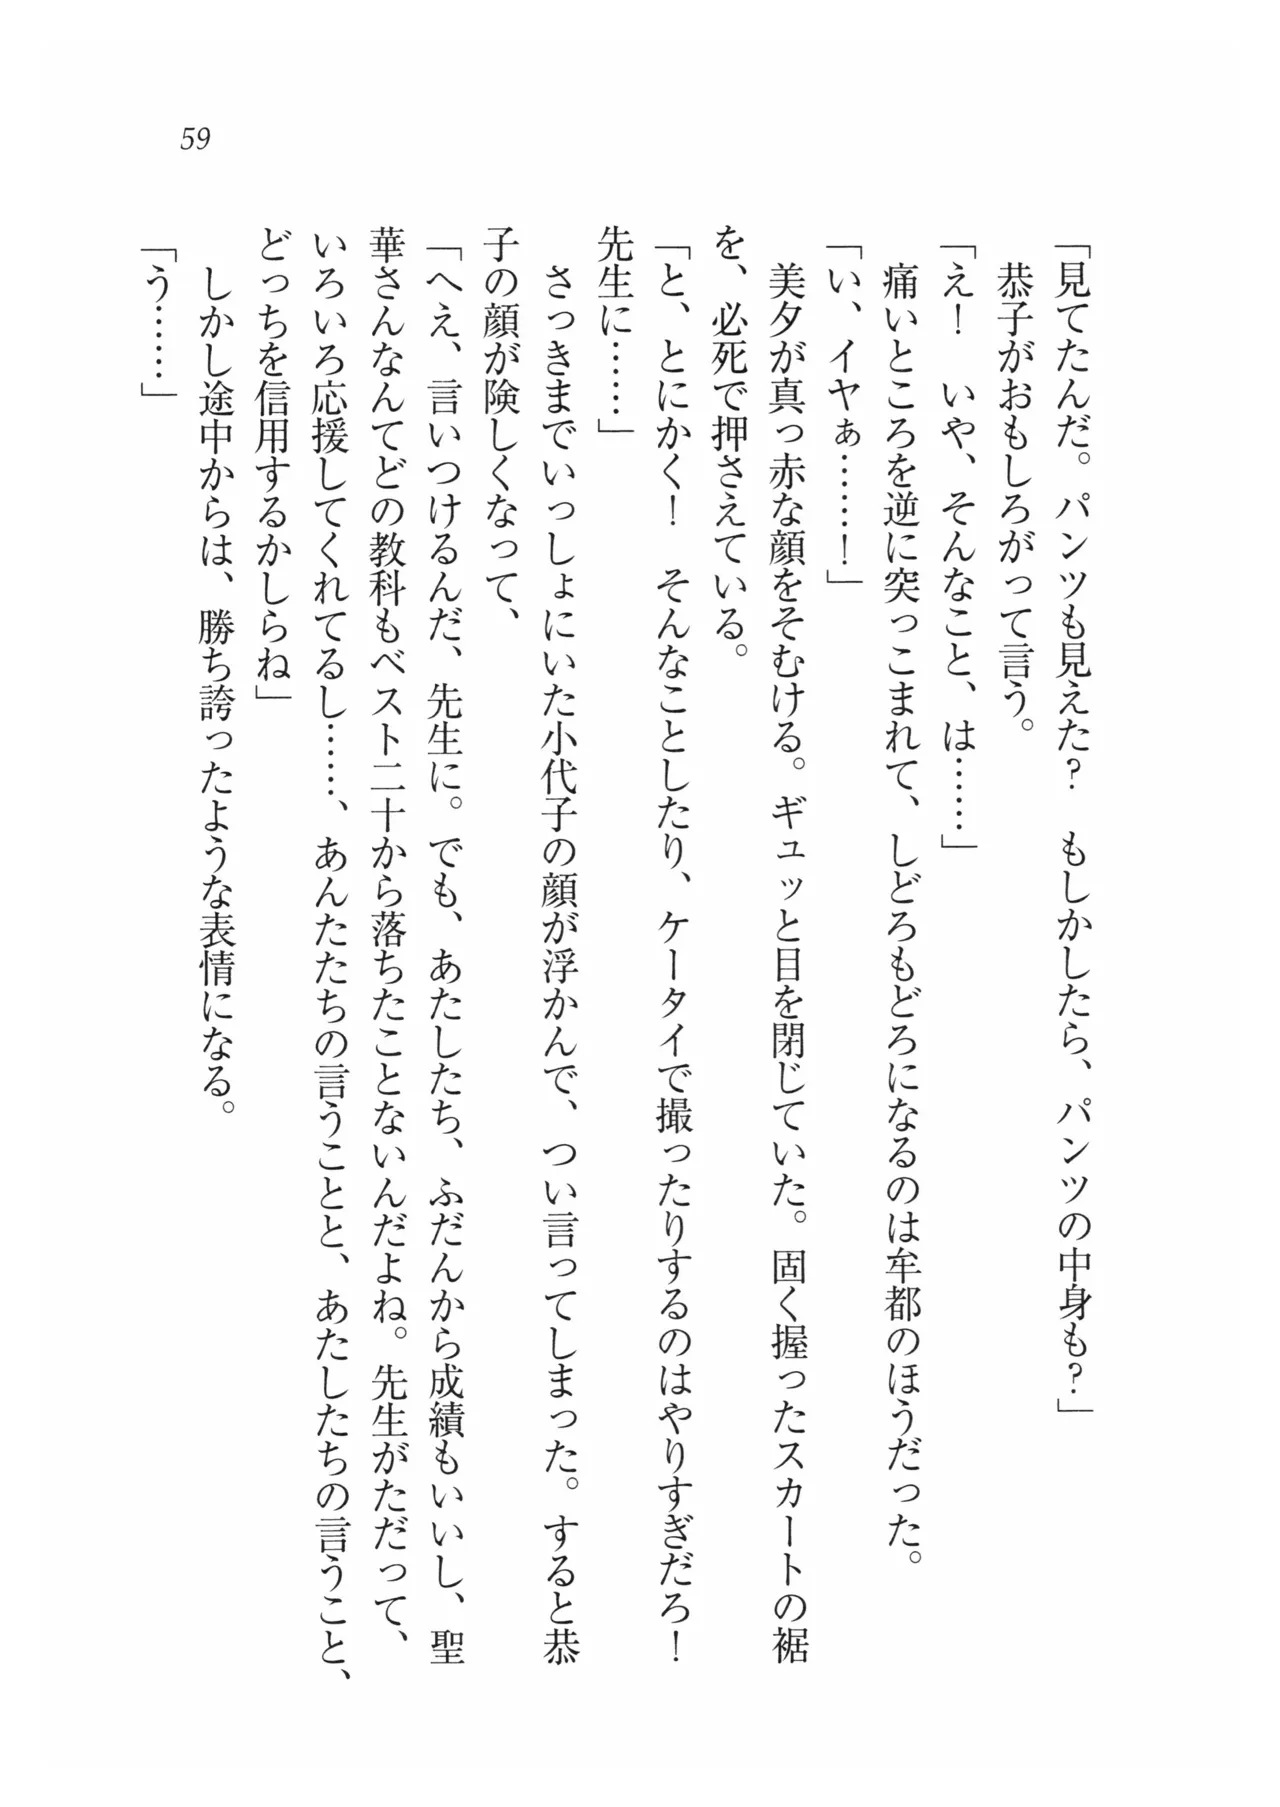 59
「見てたんだ。パンツも見えた？　もしかしたら、パンツの中身も？」
　恭子がおもしろがって言う。
「え！　いや、そんなこと、は……」
　痛いところを逆に突っこまれて、しどろもどろになるのは牟都のほうだった。
「い、イヤぁ……！」
　美夕が真っ赤な顔をそむける。ギュッと目を閉じていた。固く握ったスカートの裾
を、必死で押さえている。
「と、とにかく！　そんなことしたり、ケータイで撮ったりするのはやりすぎだろ！
先生に……」
　さっきまでいっしょにいた小代子の顔が浮かんで、つい言ってしまった。すると恭
子の顔が険しくなって、
「へえ、言いつけるんだ、先生に。でも、あたしたち、ふだんから成績もいいし、聖
華さんなんてどの教科もベスト二十から落ちたことないんだよね。先生がただって、
いろいろ応援してくれてるし……、あんたたちの言うことと、あたしたちの言うこと、
どっちを信用するかしらね」
　しかし途中からは、勝ち誇ったような表情になる。
「う……」